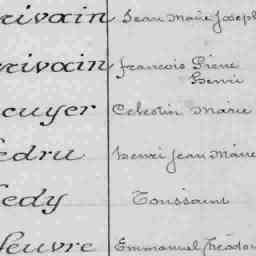 rivain Jean Marie Joseph
rivain francois Pierre
Henri
cuyer Celestin Marie
edru henri Jean Marie
edy Toussaint
feuvre Emmanuel Théodor